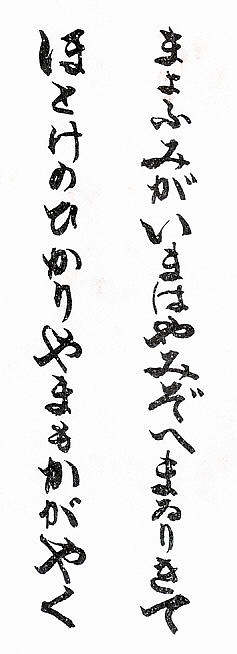 まよふみがいまはやみぞへまゐりきて
ほとけのひかりやまもかがやく